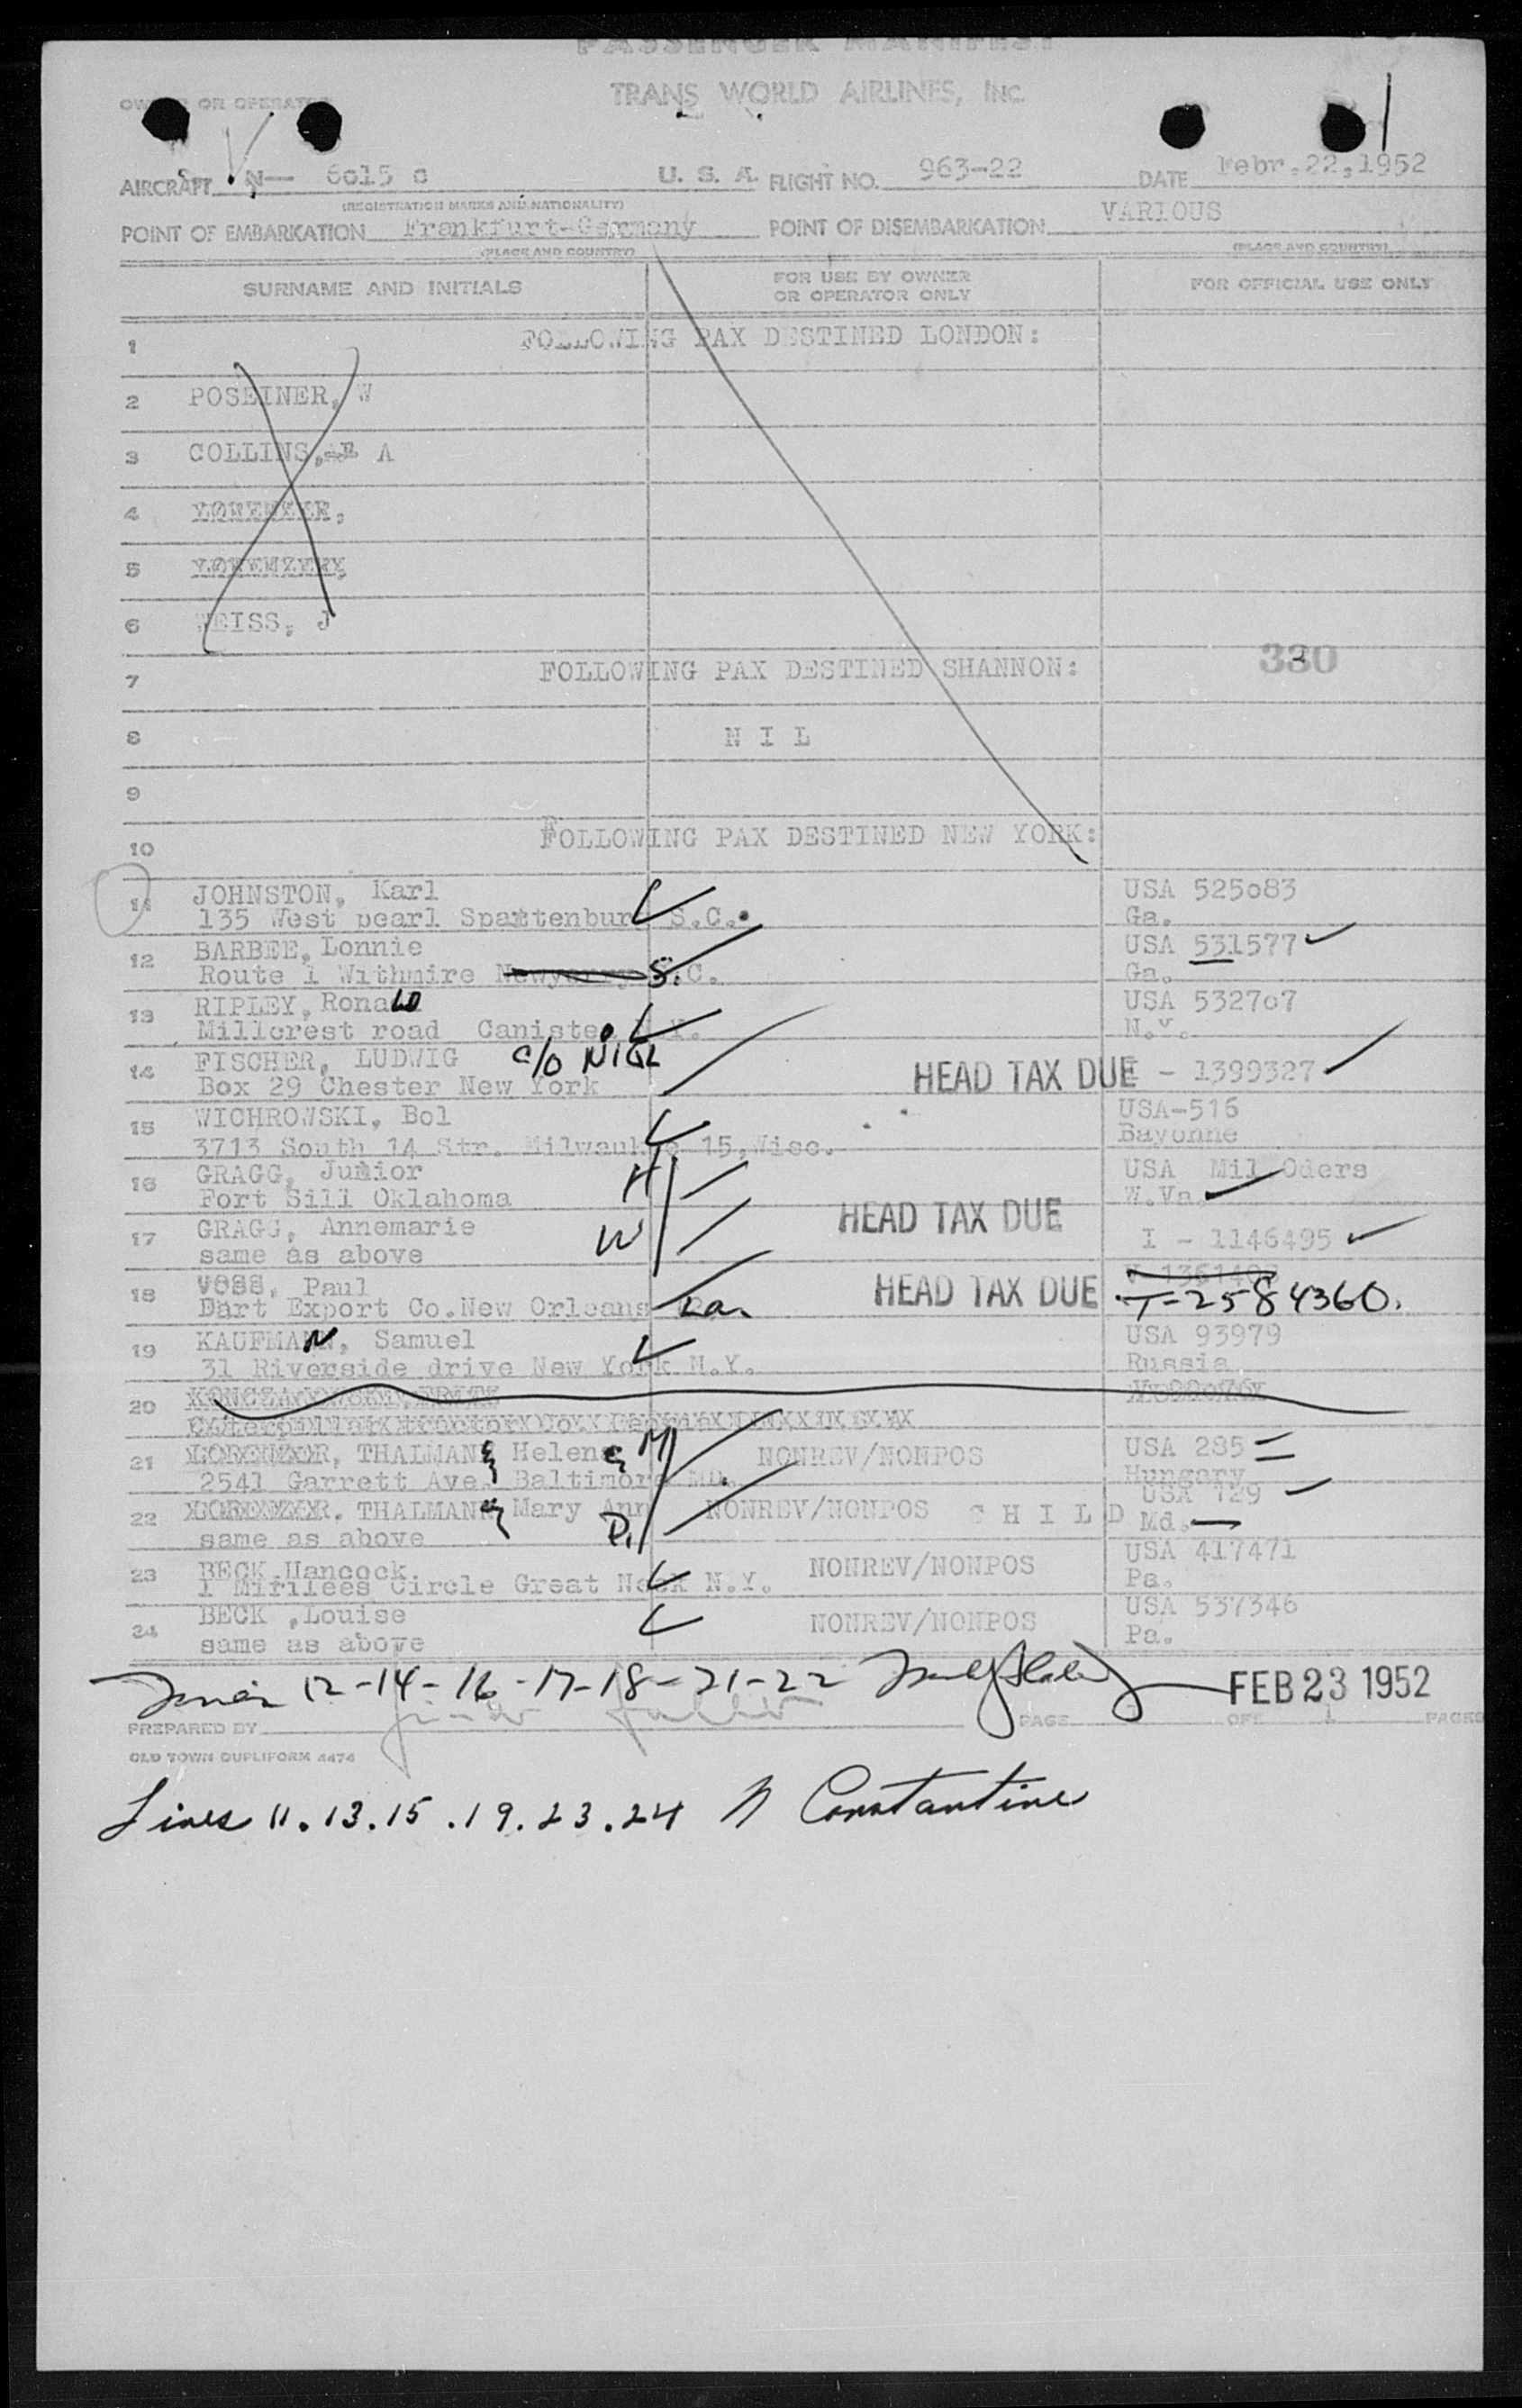 PASSENGER MANIFEST
TRANS WORLD AIRLINES, INC.
OR OPERATOR
AIRCRAFT N— 6o15 c U. S. A. FLIGHT NO. 963-22 DATE Febr.22,1952
(REGISTRATION MARKS AND NATIONALITY)
POINT OF EMBARKATION Frankfurt-Germany POINT OF DISEMBARKATION VARIOUS
(PLACE AND COUNTRY) (PLACE AND COUNTRY)
SURNAME AND INITIALS FOR USE BY OWNER OR OPERATOR ONLY FOR OFFICIAL USE ONLY
1 FOLLOWING PAX DESTINED LONDON:
2 POSEINER, W
3 COLLINS, A
4
5
6 WEISS, J
7 FOLLOWING PAX DESTINED SHANNON: 330
8 N I L
9
10 FOLLOWING PAX DESTINED NEW YORK:
11 JOHNSTON, Karl USA 525o83
135 West pearl Spattenburg S.C. Ga.
12 BARBEE, Lonnie USA 531577
Route 1 Withmire S.C. Ga.
13 RIPLEY, Ronald USA 5327o7
Millcrest road Canisteo N.Y. N.Y.
14 FISCHER, LUDWIG c/o NIGL HEAD TAX DUE I - 1399327
Box 29 Chester New York
15 WICHROWSKI, Bol USA-516
3713 South 14 Str. Milwaukee 15,Wisc. Bayonne
16 GRAGG, Junior H USA Mil Oders
Fort Sill Oklahoma W.Va.
17 GRAGG, Annemarie W HEAD TAX DUE I - 1146495
same as above
18 VOSS, Paul HEAD TAX DUE
Dart Export Co.New Orleans La. T-2584360.
19 KAUFMANN, Samuel USA 93979
31 Riverside drive New York N.Y. Russia
20
21 THALMAN Helene M NONREV/NONPOS USA 285
2541 Garrett Ave. Baltimore MD. Hungary
22 THALMAN Mary Ann D. NONREV/NONPOS C H I L D USA 729
same as above Md.
23 BECK,Hancock NONREV/NONPOS USA 417471
1 Mirilees Circle Great Neck N.Y. Pa.
24 BECK ,Louise NONREV/NONPOS USA 537346
same as above Pa.
12-14-16-17-18-21-22 FEB 23 1952
PREPARED BY PAGE OF 1 PAGES
OLD TOWN DUPLIFORM 4474
Lines 11.13.15.19.23.24 N Constantine